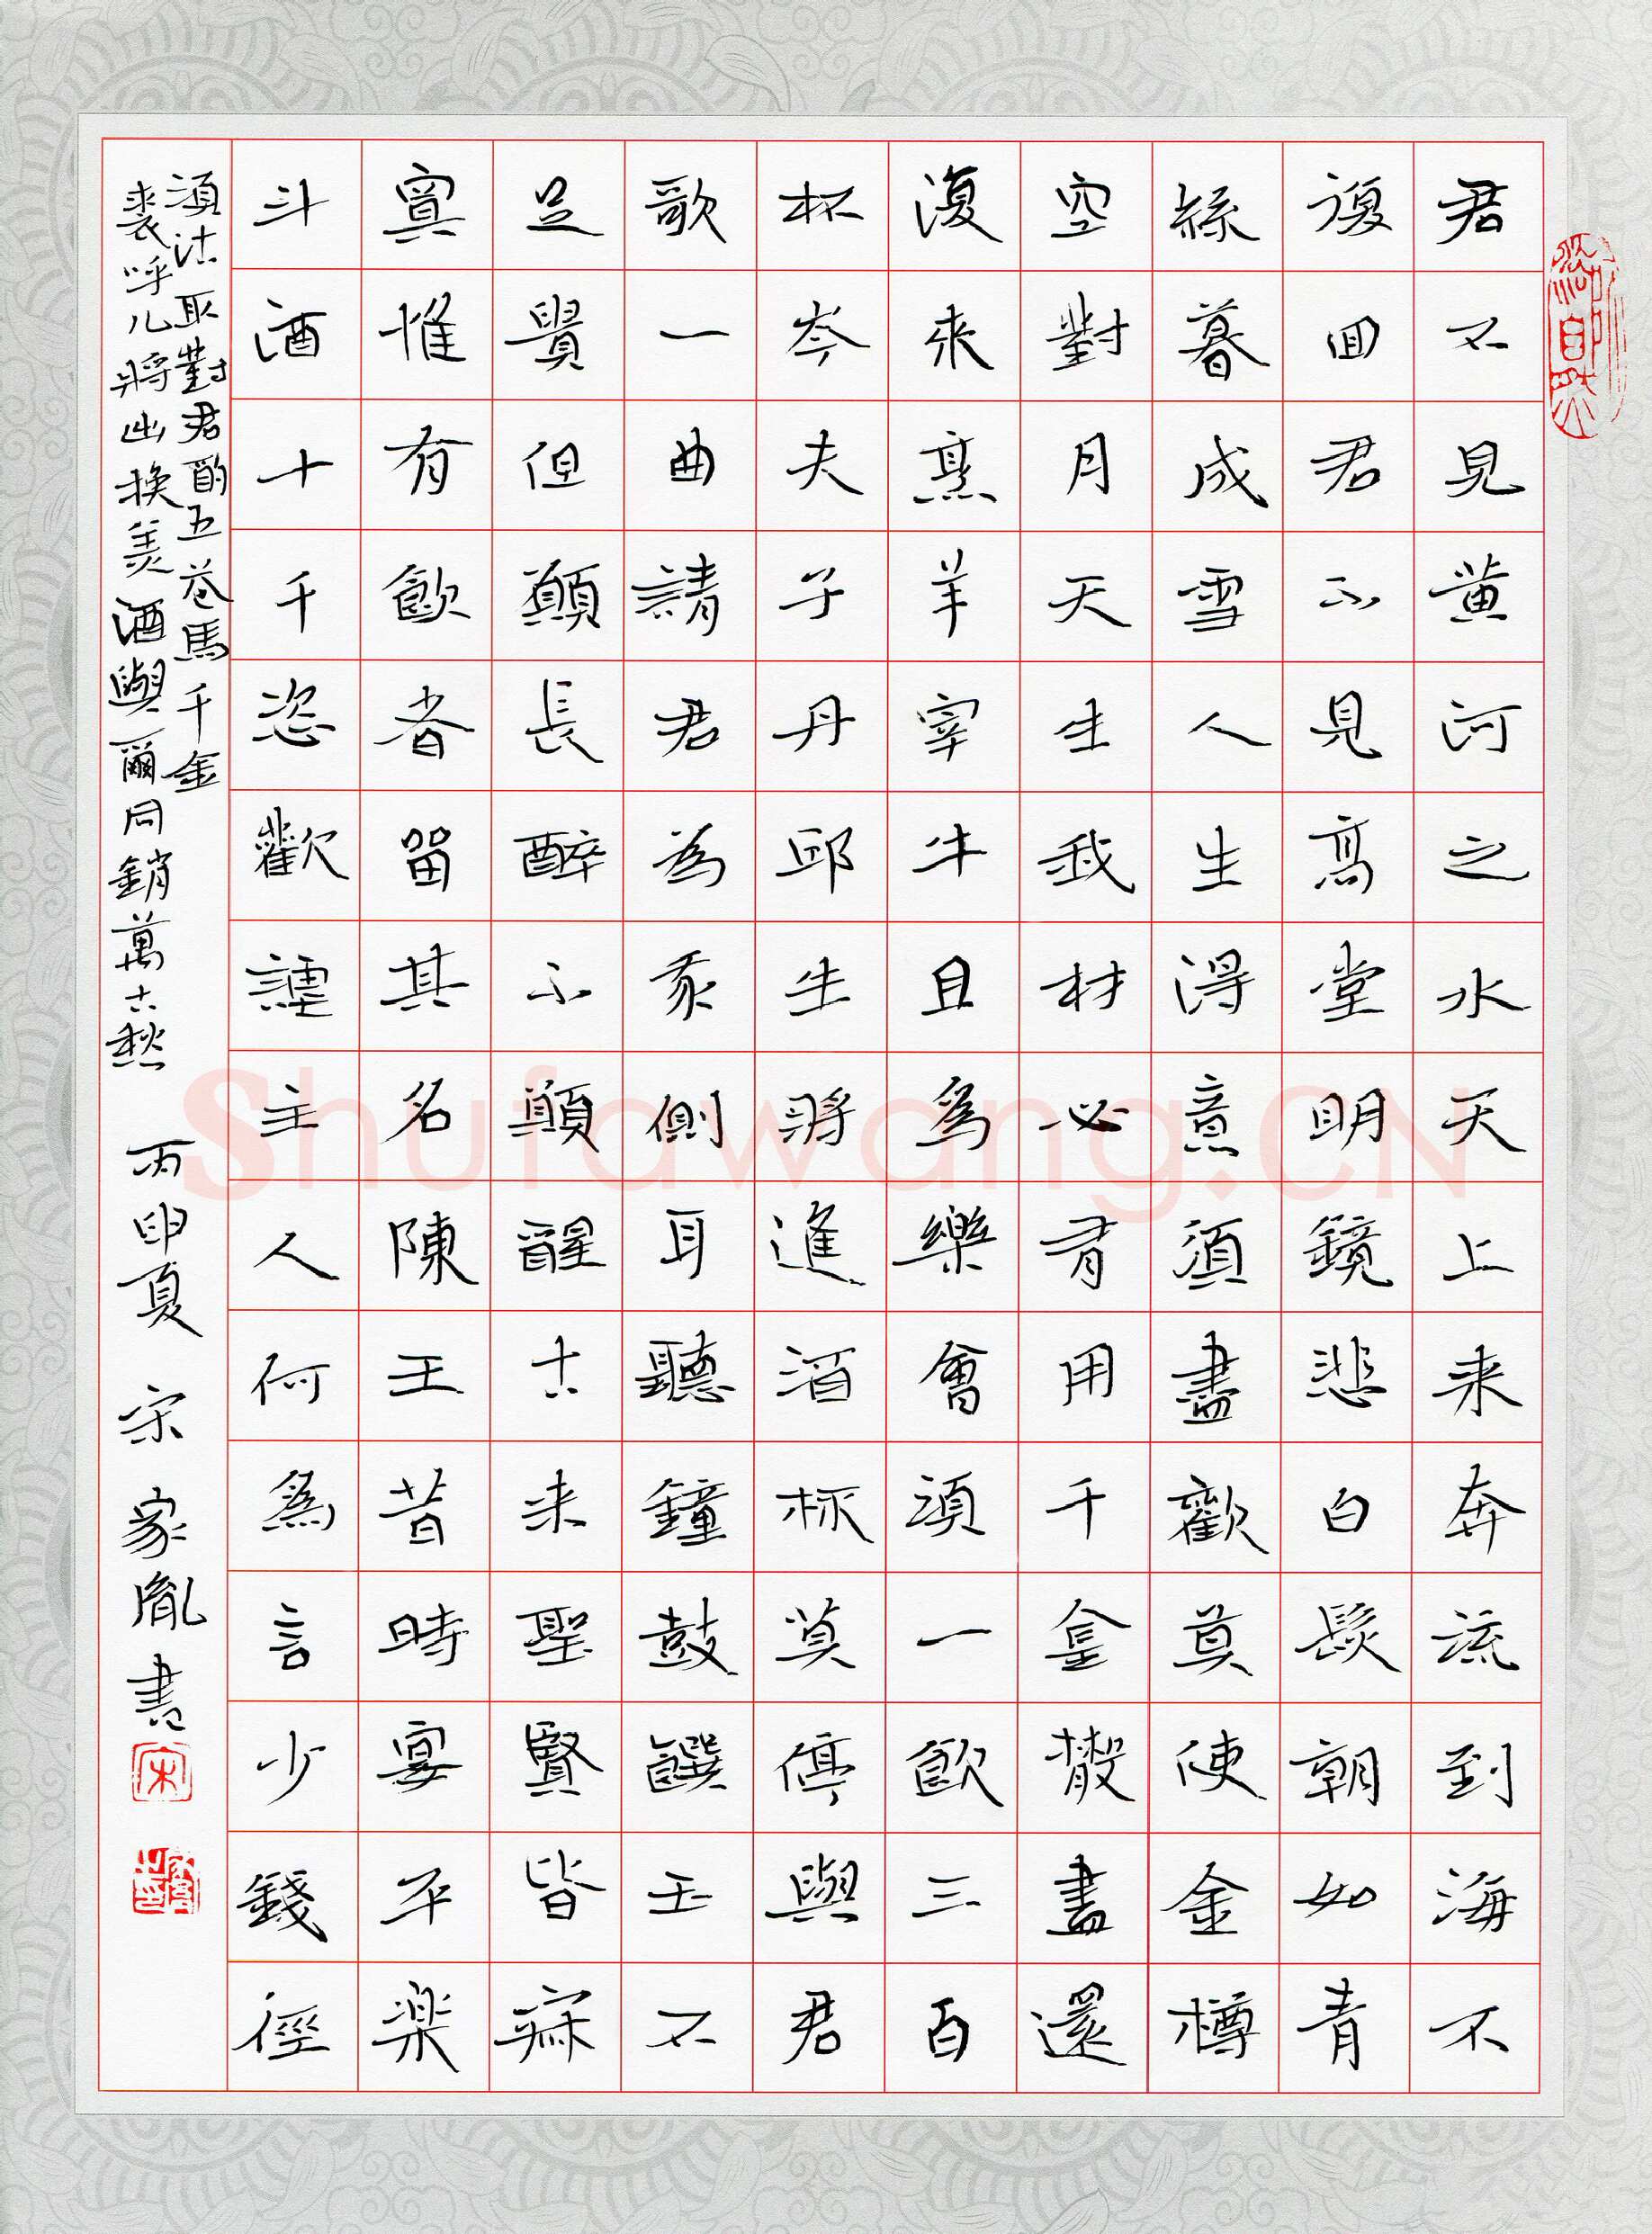 君不見黃河之水天上来奔流到海不
復回君不見高堂明鏡悲白髮朝如青
絲暮成雪人生得意須盡歡莫使金樽
空對月天生我材必有用千金散盡還
復来烹羊宰牛且為樂會須一飲三百
杯岑夫子丹邱生將進酒杯莫停與君
歌一曲請君為我側耳聽鐘鼓饌玉不
足貴但願長醉不願醒古来聖賢皆寂
寞惟有飲者留其名陳王昔時宴平樂
斗酒十千恣歡謔主人何為言少錢徑
須沽取對君酌五花馬千金
裘呼儿將出換美酒與爾同銷萬古愁
丙申夏 宋家胤書
Shufawang.CN